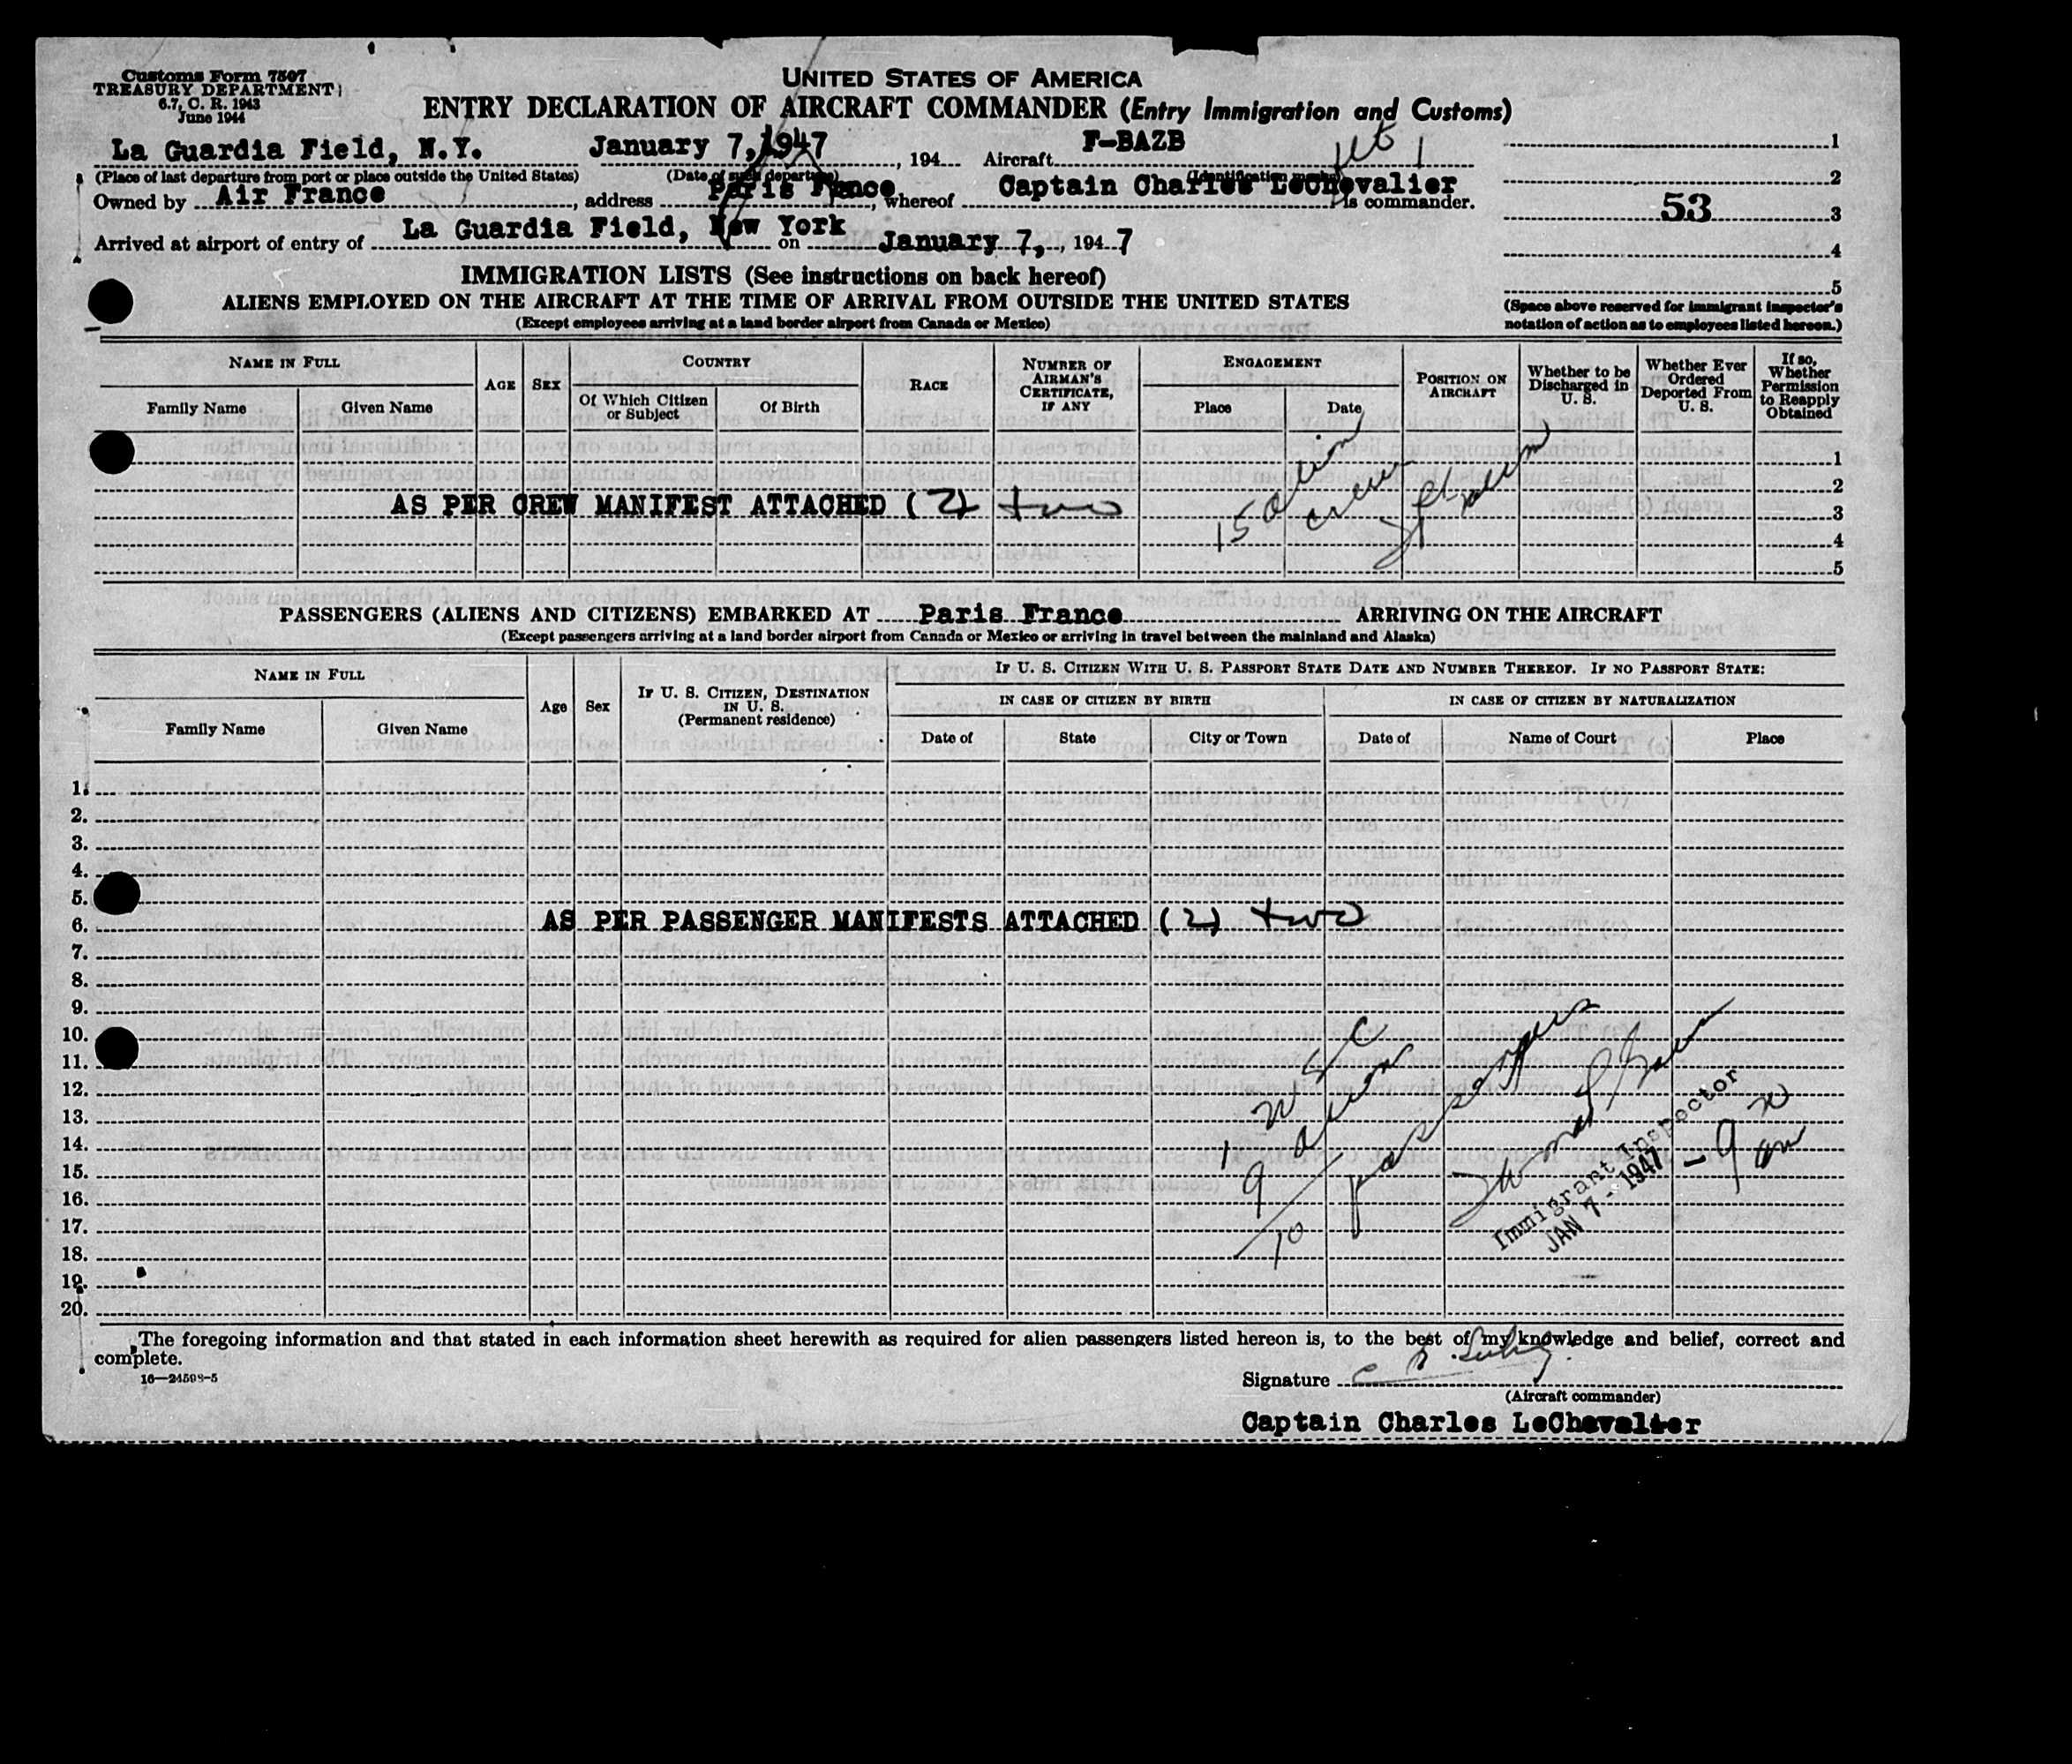 Customs Form 7507
TREASURY DEPARTMENT
6.7, C. R. 1943
June 1944
UNITED STATES OF AMERICA
ENTRY DECLARATION OF AIRCRAFT COMMANDER (Entry Immigration and Customs)
La Guardia Field, N.Y. January 7, 1947, 194 Aircraft F-BAZB
(Place of last departure from port or place outside the United States) (Date of such departure) (Identification marks)
Owned by Air France, address Paris France, whereof Captain Charles LeChevalier is commander.
Arrived at airport of entry of La Guardia Field, New York on January 7, 1947
1
2
53 3
4
5
(Space above reserved for immigrant inspector's
notation of action as to employees listed hereon.)
IMMIGRATION LISTS (See instructions on back hereof)
ALIENS EMPLOYED ON THE AIRCRAFT AT THE TIME OF ARRIVAL FROM OUTSIDE THE UNITED STATES
(Except employees arriving at a land border airport from Canada or Mexico)
NAME IN FULL
Family Name
Given Name
AGE
SEX
COUNTRY
Of Which Citizen
or Subject
Of Birth
RACE
NUMBER OF
AIRMAN'S
CERTIFICATE,
IF ANY
ENGAGEMENT
Place
Date
POSITION ON
AIRCRAFT
Whether to be
Discharged in
U. S.
Whether Ever
Ordered
Deported From
U. S.
If so,
Whether
Permission
to Reapply
Obtained
1
2
AS PER CREW MANIFEST ATTACHED (2) two 3
4
5
15 alien
crew
PASSENGERS (ALIENS AND CITIZENS) EMBARKED AT Paris France ARRIVING ON THE AIRCRAFT
(Except passengers arriving at a land border airport from Canada or Mexico or arriving in travel between the mainland and Alaska)
NAME IN FULL
Family Name
Given Name
Age
Sex
IF U. S. CITIZEN, DESTINATION
IN U. S.
(Permanent residence)
IF U. S. CITIZEN WITH U. S. PASSPORT STATE DATE AND NUMBER THEREOF. IF NO PASSPORT STATE:
IN CASE OF CITIZEN BY BIRTH
Date of
State
City or Town
IN CASE OF CITIZEN BY NATURALIZATION
Date of
Name of Court
Place
1.
2.
3.
4.
5.
6. AS PER PASSENGER MANIFESTS ATTACHED (2) two
7.
8.
9.
10.
11.
12.
13.
14.
15.
16.
17.
18.
19.
20.
1 U S C
9 alien
10 passengers
Immigrant Inspector
JAN 7 - 1947 - 9
The foregoing information and that stated in each information sheet herewith as required for alien passengers listed hereon is, to the best of my knowledge and belief, correct and
complete.
16—24598-5
Signature
(Aircraft commander)
Captain Charles LeChevalier